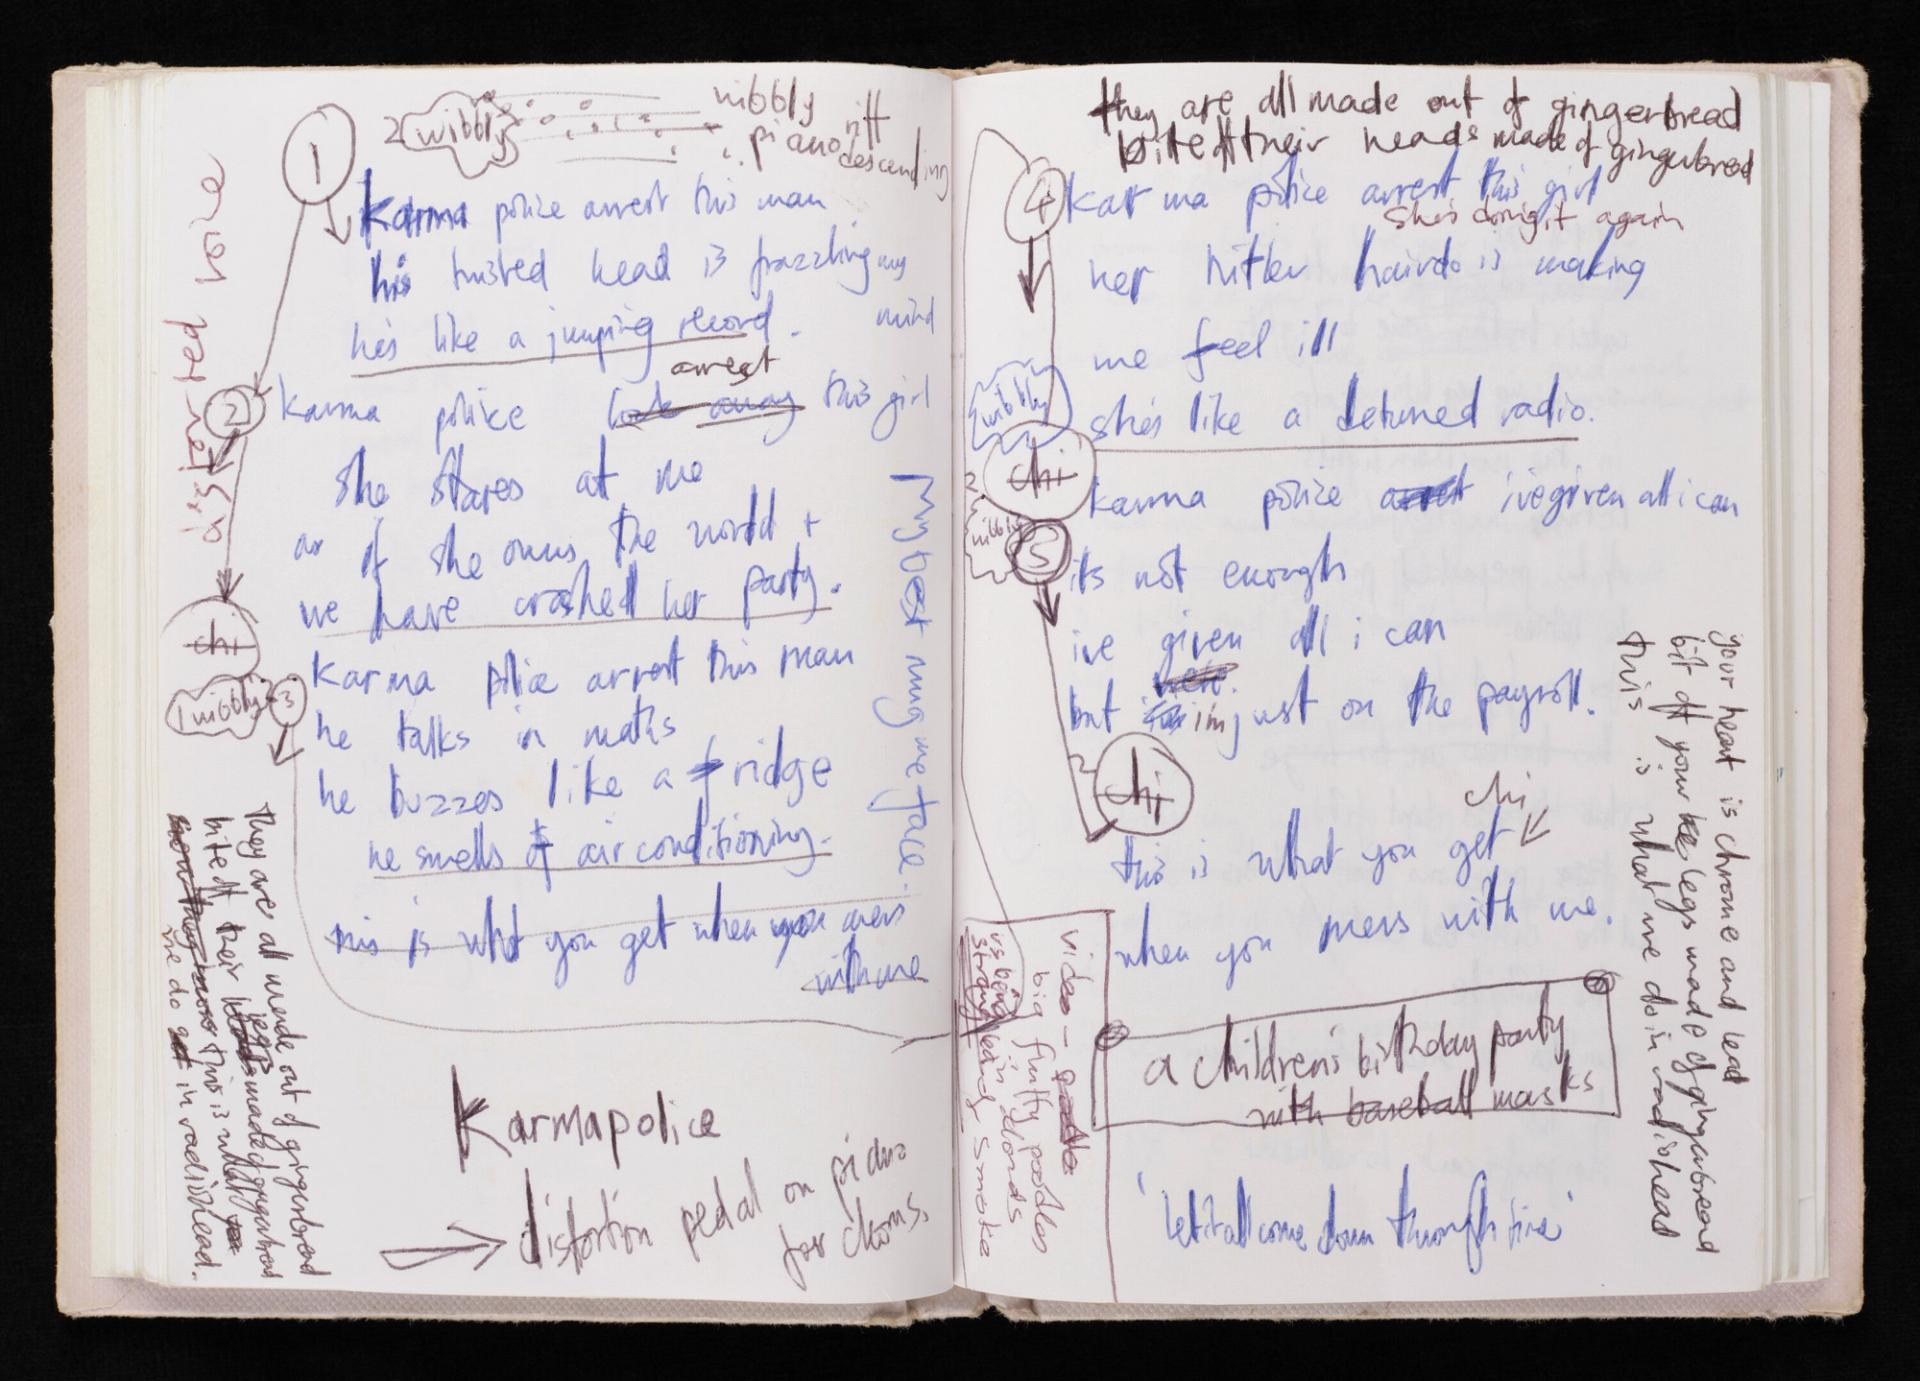 1
2 wibbly
nibbly
piano riff
descending
Karma police arrest this man
his twisted head is frazzling my
mind
hes like a jumping record.
arrest
2
karma police look away this girl
she stares at me
as if she owns the world +
we have crashed her party.
chi
1 wibbly
3
Karma police arrest this man
he talks in maths
he buzzes like a fridge
he smells of air conditioning.
this is what you get when you mess
with me
My best
me face.
Karmapolice
distortion pedal on piano
for chorus.
over
They are all made out of gingerbread
bite off their heads legs made of gingerbread
this is what
we do in radiohead.
they are all made out of gingerbread
bite off their heads made of gingerbread
4
karma police arrest this girl
she's doing it again
her hitler hairdo is making
me feel ill
wibbly
she's like a detuned radio.
chi
2 wibbly
5
karma police arrest ive given all i can
its not enough
ive given all i can
here.
but im just on the payroll.
chi
chi
this is what you get
when you mess with me.
a children's birthday party
with baseball masks
'let it all come down through fire'
video - poodle
big fluffy poodles
in clouds
vs being
smoke
your heart is chrome and lead
bit off your legs made of gingerbread
this is what we do in radiohead